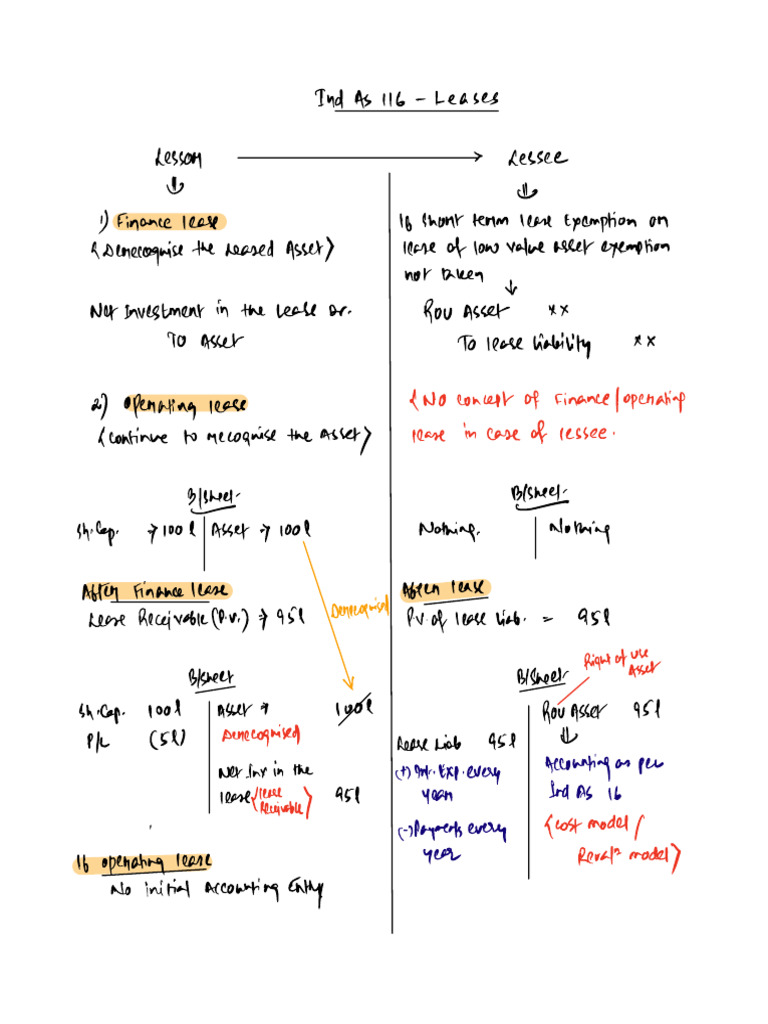 Ind As 116 - Leases
Lessor
Lessee
1) Finance lease
(Derecognise the leased Asset)
Net Investment in the lease Dr.
To Asset
2) Operating lease
(continue to recognise the Asset)
B/sheet
Sh. Cap. → 100l Asset → 100l
After Finance lease
Lease Receivable (P.V.) → 95l
Derecognised
B/sheet
Sh. Cap. 100l Asset → 100l
P/L (5l) Derecognised
Net Inv in the
lease (lease Receivable) 95l
If operating lease
No initial Accounting Entry
If short term lease exemption or
lease of low value asset exemption
not taken
ROU Asset xx
To lease liability xx
(No concept of Finance/operating
lease in case of lessee.
B/sheet
Nothing. Nothing
After lease
P.V. of lease liab. = 95l
B/sheet
Right of use
Asset
ROU Asset 95l
Lease liab 95l
(+) Int. Exp. every
year
(-) Payments every
year
Accounting as per
Ind AS 16
(cost model/
Revalⁿ model)